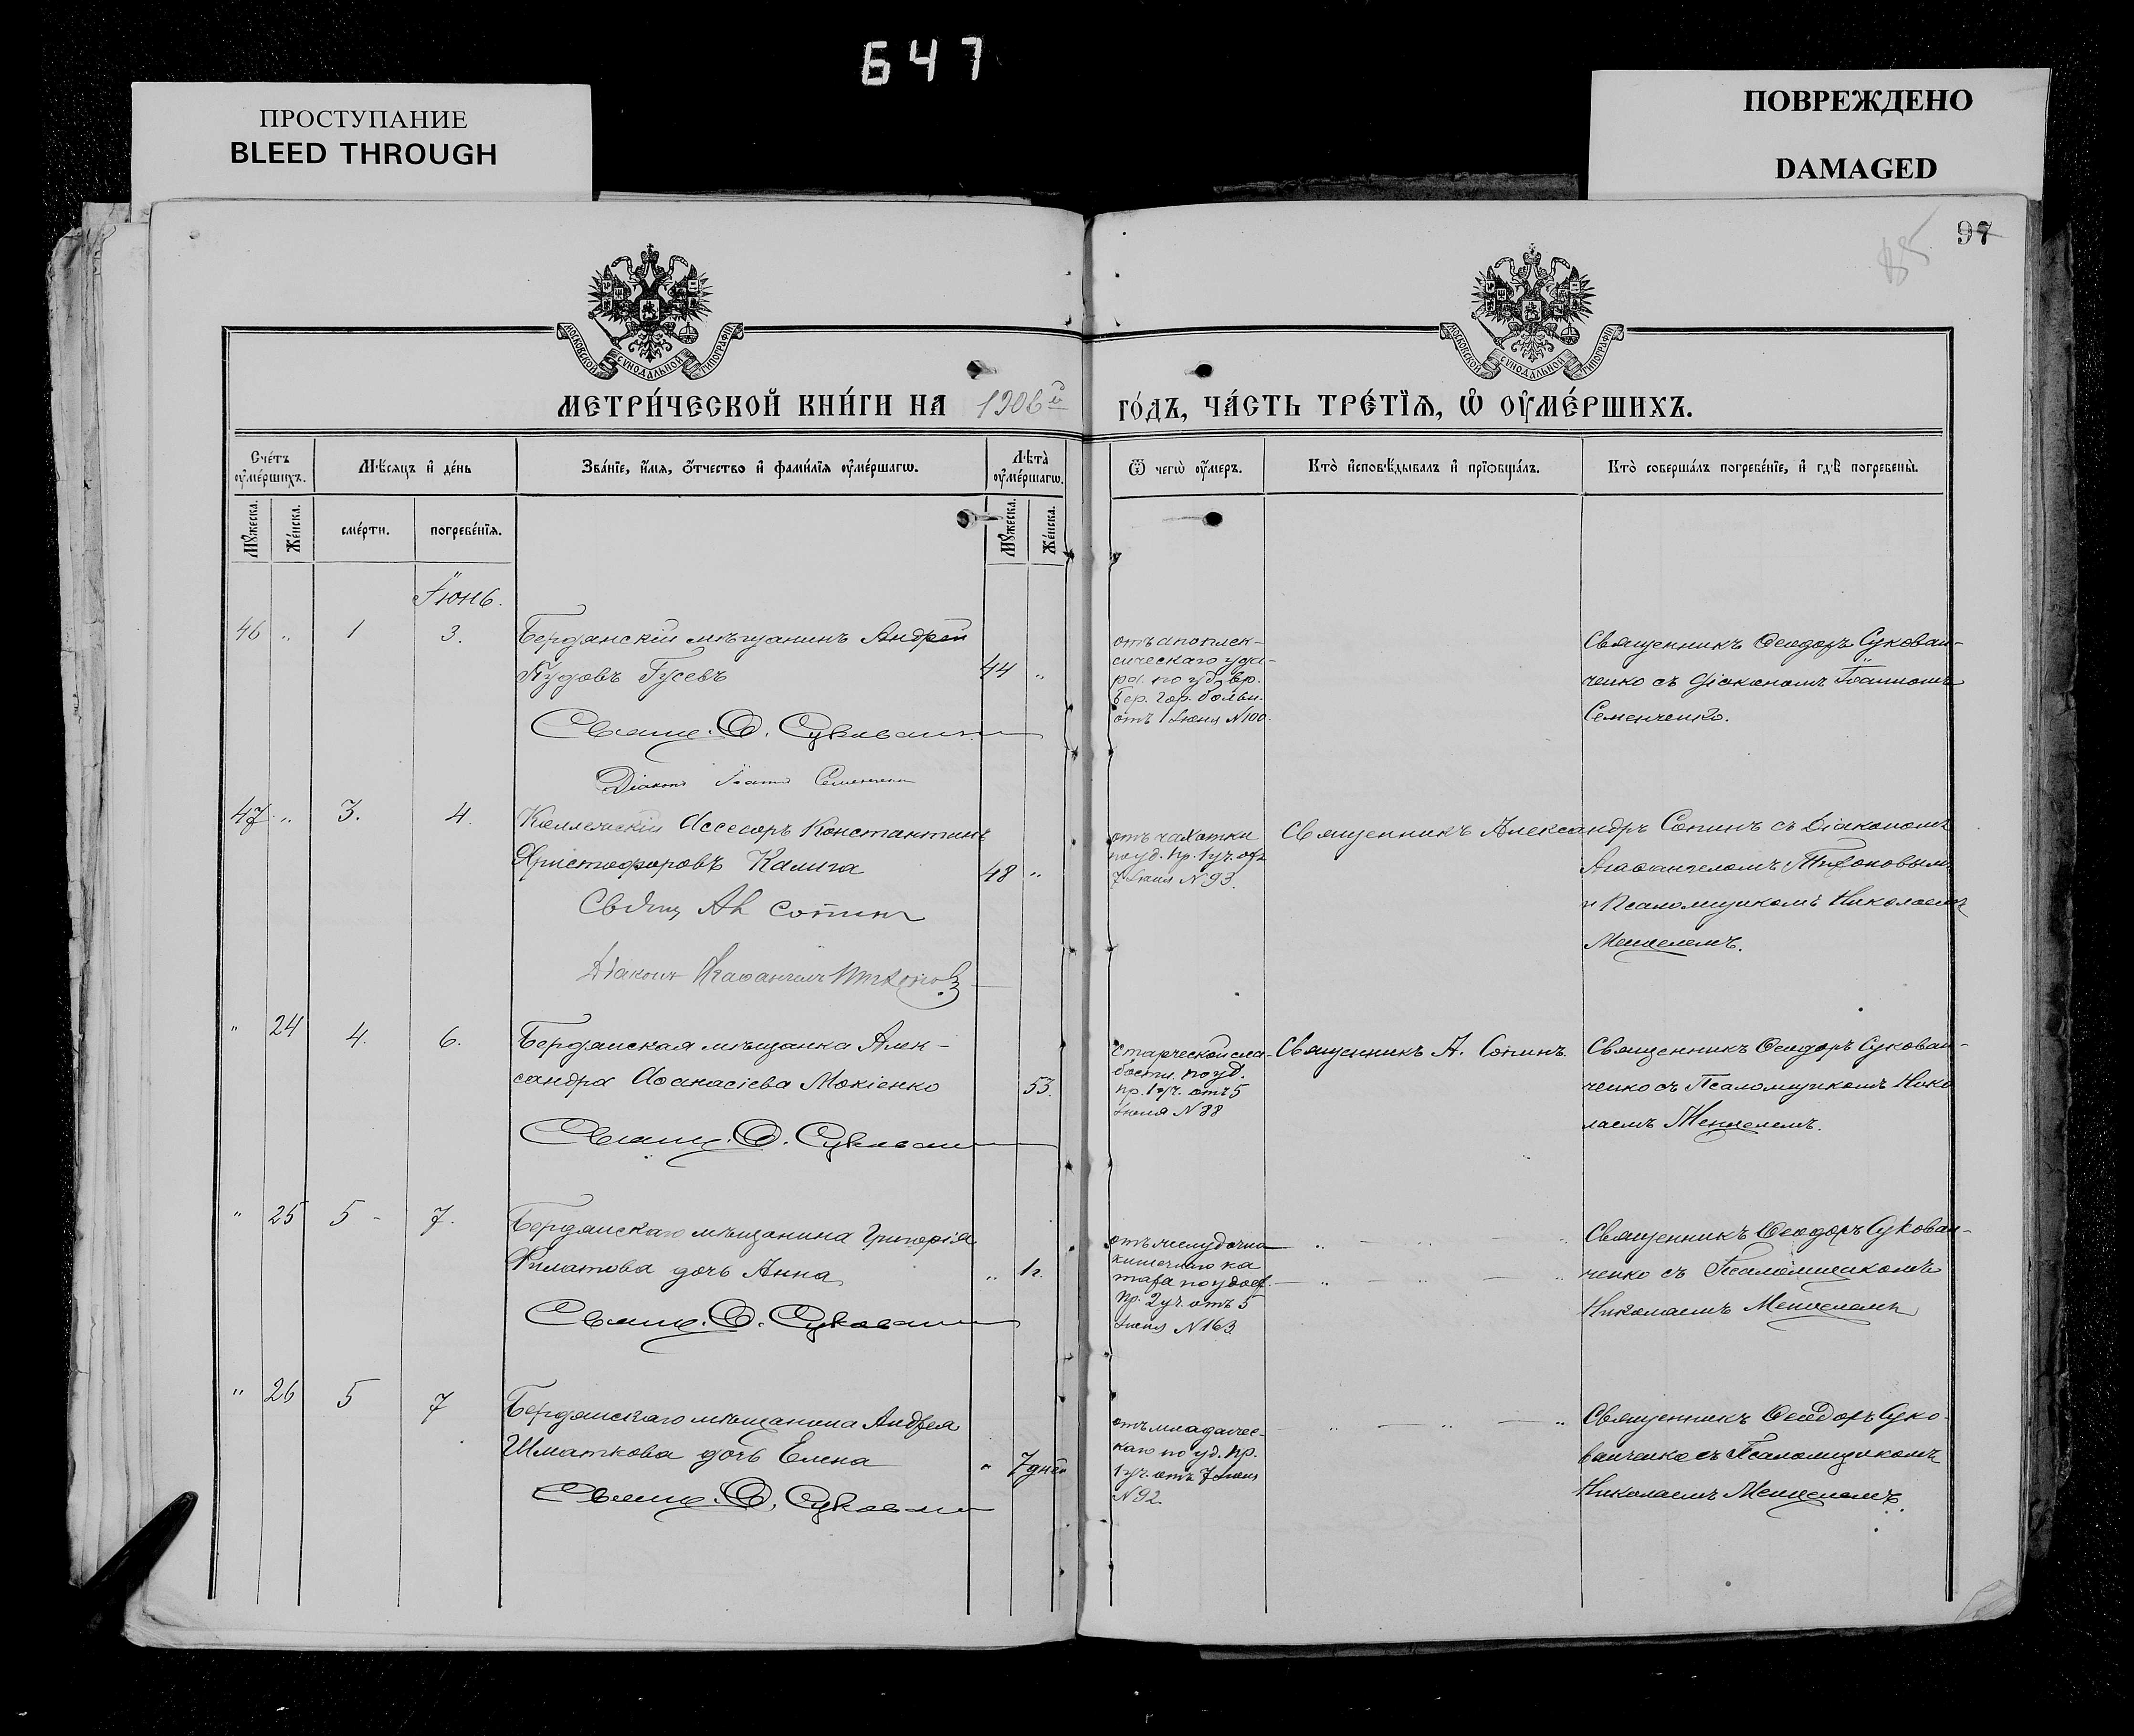 647
ПРОСТУПАНИЕ
BLEED THROUGH
ПОВРЕЖДЕНО
DAMAGED
97
85
МОСКОВСКОЙ СѴНОДАЛЬНОЙ ТИПОГРАФІИ
МОСКОВСКОЙ СѴНОДАЛЬНОЙ ТИПОГРАФІИ
МЕТРИ́ЧЕСКОЙ КНИ́ГИ НА 1906й ГО́ДЪ, ЧА́СТЬ ТРЕ́ТЇѦ, Ѡ҆ ОУ҆МЕ́РШИХЪ.
Сче́тъ оу҆ме́ршихъ.
Мѣ́сѧцъ и҆ де́нь
Зва́нїе, и҆́мѧ, ѻ҆́тчество и҆ фами́лїѧ оу҆ме́ршагѡ.
Лѣ́та̀ оу҆ме́ршагѡ.
Ѿ чегѡ̀ оу҆́меръ.
Кто̀ и҆сповѣ́дывалъ и҆ прїѡбща́лъ.
Кто̀ соверша́лъ погребе́нїе, и҆ гдѣ̀ погребены̀.
Мꙋ́жеска.
Же́нска.
сме́рти.
погребе́нїѧ.
Мꙋ́жеска.
Же́нска.
Іюнь.
46 " 1 3.
Бердянскій мѣщанинъ Андрей
Пудовъ Гусевъ 44 "
Свящ. Ѳ. Сукован
Діаконъ Іоаннъ Семенченко
отъ апоплек-
сическаго уда-
ра. по уд. вр.
Бер. гор. больн.
отъ 1 Іюня №100.
Священникъ Ѳеодоръ Сукован-
ченко съ Діакономъ Іоанномъ
Семенченко.
47 " 3. 4.
Коллежскій Ассесоръ Константинъ
Христофоровъ Калига 48 "
Свящ Ал Сопин
Діаконъ Агаѳангелъ Тихоновъ
отъ чахотки
по уд. пр. 1 уч. отъ
7 Іюня №93.
Священникъ Александръ Сопинъ съ Діакономъ
Агаѳангеломъ Тихоновымъ
и Псаломщикомъ Николаемъ
" 24 4. 6.
Бердянская мѣщанка Алек-
сандра Аѳанасіева Мокіенко 53.
Свящ. Ѳ. Сукован
Старческой сла-
бости. по уд.
пр. 1 уч. отъ 5
Іюня №88
Священникъ А. Сопинъ.
Священникъ Ѳеодоръ Сукован-
ченко съ Псаломщикомъ Нико
лаемъ
" 25 5 - 7.
Бердянскаго мѣщанина Григорія
Филатова дочь Анна " 1г.
Свящ. Ѳ. Сукован
отъ желудочно
кишечнаго ка
тара по удост.
пр. 2 уч. отъ 5
Іюня №163
Священникъ Ѳеодоръ Сукован-
ченко съ Псаломщикомъ
Николаемъ
" 26 5 7
Бердянскаго мѣщанина Андрея
Шматкова дочь Елена " 7 дней
Свящ. Ѳ. Сукован
отъ младенчес-
каго по уд. пр.
1 уч. отъ 7 Іюня
№92.
Священникъ Ѳеодоръ Суко-
ванченко съ Псаломщикомъ
Николаемъ